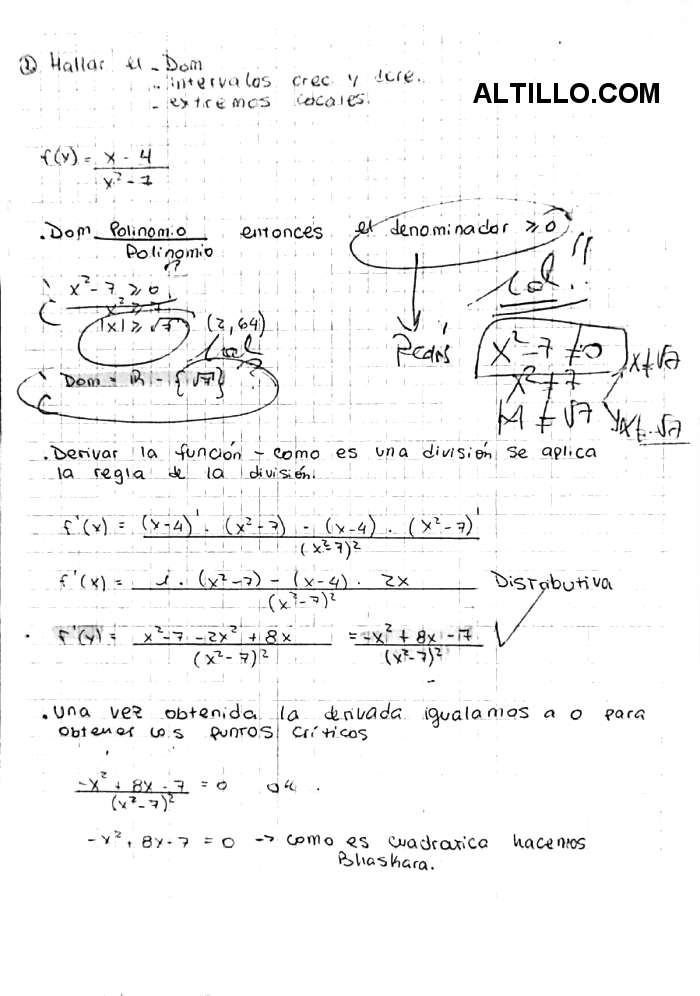 ① Hallar el - Dom
- intervalos crec y decre.
- extremos locales.
ALTILLO.COM
f(x) = x - 4
x² - 7
. Dom Polinomio entonces el denominador ≥ 0
Polinomio
x² - 7 ≥ 0
x² ≥ 7
|x| ≥ √7 (2,64)
x² - 7 ≠ 0
x² ≠ 7
|x| ≠ √7
x ≠ √7
x ≠ -√7
Dom = R - {√7} ?
. Derivar la función - como es una división se aplica
la regla de la división.
f'(x) = (x-4)' . (x²-7) - (x-4) . (x²-7)'
(x²-7)²
f'(x) = 1 . (x²-7) - (x-4) . 2x Distributiva
(x²-7)²
. f'(x) = x²-7 -2x² + 8x = -x² + 8x -7
(x²-7)² (x²-7)²
. Una vez obtenida la derivada igualamos a 0 para
obtener los puntos críticos
-x² + 8x - 7 = 0
(x²-7)²
-x² + 8x - 7 = 0 → como es cuadratica hacemos
Bhaskara.